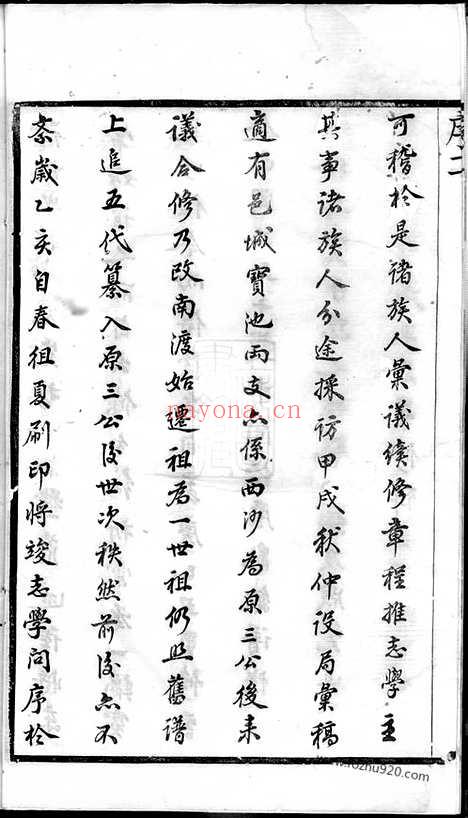 序二
可稽於是諸族人彙議續修章程推志學主
其事諸族人分途採訪甲戌秋仲設局彙稿
適有邑城寶池兩支亦係西沙為原三公後來
議合修乃改南渡始遷祖為一世祖仍照舊譜
上追五代纂入原三公後世次秩然前後亦不
紊歲乙亥自春徂夏刷印將竣志學問序於
nayona.cn